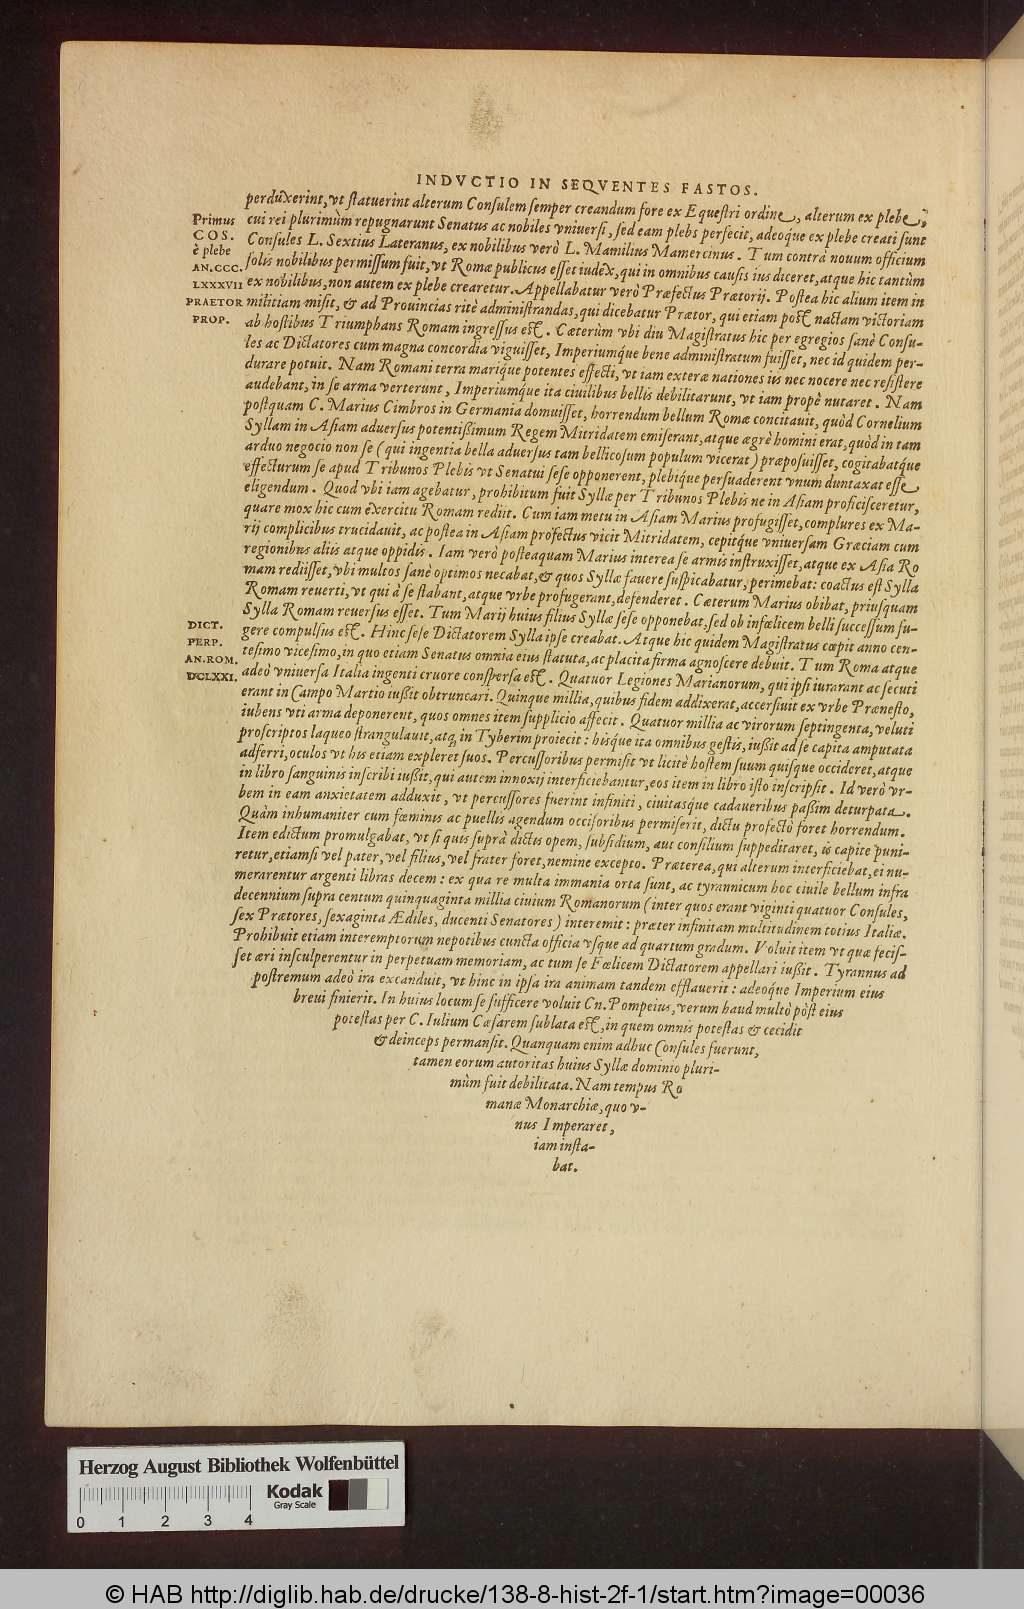 INDVCTIO IN SEQVENTES FASTOS.
perduxerint, vt statuerint alterum Consulem semper creandum fore ex Equestri ordine, alterum ex plebe;
cui rei plurimùm repugnarunt Senatus ac nobiles vniuersi, sed eam plebs persecit, adeoque ex plebe creati sunt
Consules L. Sextius Lateranus, ex nobilibus verò L. Mamilius Mamercinus. Tum contrà nouum officium
solis nobilibus permissum fuit, vt Romæ publicus esset iudex, qui in omnibus causis ius diceret, atque hic tantùm
ex nobilibus, non autem ex plebe crearetur. Appellabatur verò Præfectus Prætorij. Postea hic alium item in
militiam misit, & ad Prouincias ritè administrandas, qui dicebatur Prætor, qui etiam post nactam victoriam
ab hostibus Triumphans Romam ingressus est. Cæterùm vbi diu Magistratus hic per egregios sanè Consu-
les ac Dictatores cum magna concordia viguisset, Imperiumq́ue bene administratum fuisset, nec id quidem per-
durare potuit. Nam Romani terra marique potentes effecti, vt iam exteræ nationes ius nec nocere nec resistere
audebant, in se arma verterunt, Imperiumque ita ciuilibus bellis debilitarunt, vt iam propè nutaret. Nam
postquam C. Marius Cimbros in Germania domuisset, horrendum bellum Romæ concitauit, quòd Cornelium
Syllam in Asiam aduersus potentißimum Regem Mitridatem emiserant, atque ægrè homini erat, quòd in tam
arduo negocio non se (qui ingentia bella aduersus tam bellicosum populum vicerat) præposuisset, cogitabatq́ue
effecturum se apud Tribunos Plebis vt Senatui sese opponerent, plebiq́ue persuaderent vnum duntaxat esse
eligendum. Quod vbi iam agebatur, prohibitum fuit Syllæ per Tribunos Plebis ne in Asiam proficisceretur,
quare mox hic cum exercitu Romam rediit. Cum iam metu in Asiam Marius profugisset, complures ex Ma-
rij complicibus trucidauit, ac postea in Asiam profectus vicit Mitridatem, cepitq́ue vniuersam Græciam cum
regionibus aliis atque oppidis. Iam verò posteaquam Marius interea se armis instruxisset, atque ex Asia Ro
mam rediisset, vbi multos sanè optimos necabat, & quos Syllæ fauere suspicabatur, perimebat: coactus est Sylla
Romam reuerti, vt qui à se stabant, atque vrbe profugerant, defenderet. Cæterum Marius obibat, priusquam
Sylla Romam reuersus esset. Tum Marij huius filius Syllæ sese opponebat, sed ob infœlicem belli successum fu-
gere compulsus est. Hinc sese Dictatorem Sylla ipse creabat. Atque hic quidem Magistratus cœpit anno cen-
tesimo vicesimo, in quo etiam Senatus omnia eius statuta, ac placita firma agnoscere debuit. Tum Roma atque
adeò vniuersa Italia ingenti cruore conspersa est. Quatuor Legiones Marianorum, qui ipsi iurarant ac secuti
erant in Campo Martio iußit obtruncari. Quinque millia, quibus fidem addixerat, accersiuit ex vrbe Præneste,
iubens vti arma deponerent, quos omnes item supplicio affecit. Quatuor millia ac virorum septingenta, veluti
proscriptos laqueo strangulauit, atq; in Tyberim proiecit: hisq́ue ita omnibus gestis, iußit ad se capita amputata
adferri, oculos vt his etiam expleret suos. Percussoribus permisit vt licitè hostem suum quisque occideret, atque
in libro sanguinis inscribi iußit, qui autem innoxij interficiebantur, eos item in libro isto inscripsit. Id verò vr-
bem in eam anxietatem adduxit, vt percussores fuerint infiniti, ciuitasque cadaueribus paßim deturpata.
Quàm inhumaniter cum fœminis ac puellis agendum occisoribus permiserit, dictu profectò foret horrendum.
Item edictum promulgabat, vt si quis suprà dictis opem, subsidium, aut consilium suppeditaret, is capite puni-
retur, etiamsi vel pater, vel filius, vel frater foret, nemine excepto. Præterea, qui alterum interficiebat, ei nu-
merarentur argenti libras decem: ex qua re multa immania orta sunt, ac tyrannicum hoc ciuile bellum infra
decennium supra centum quinquaginta millia ciuium Romanorum (inter quos erant viginti quatuor Consules,
sex Prætores, sexaginta Ædiles, ducenti Senatores) interemit: præter infinitam multitudinem totius Italiæ.
Prohibuit etiam interemptorum nepotibus cuncta officia vsque ad quartum gradum. Voluit item vt quæ fecis-
set æri insculperentur in perpetuam memoriam, ac tum se Fœlicem Dictatorem appellari iußit. Tyrannus ad
postremum adeò ira excanduit, vt hinc in ipsa ira animam tandem efflauerit: adeoque Imperium eius
breui finierit. In huius locum se sufficere voluit Cn. Pompeius, verum haud multò pòst eius
potestas per C. Iulium Cæsarem sublata est, in quem omnis potestas & cecidit
& deinceps permansit. Quanquam enim adhuc Consules fuerunt,
tamen eorum autoritas huius Syllæ dominio pluri-
mùm fuit debilitata. Nam tempus Ro
manæ Monarchiæ, quo v-
nus Imperaret,
iam insta-
bat.
Primus
COS.
è plebe
AN.CCC.
LXXXVII
PRAETOR
PROP.
DICT.
PERP.
AN.ROM.
DCLXXI.
Herzog August Bibliothek Wolfenbüttel
Kodak
Gray Scale
0 1 2 3 4
© HAB http://diglib.hab.de/drucke/138-8-hist-2f-1/start.htm?image=00036